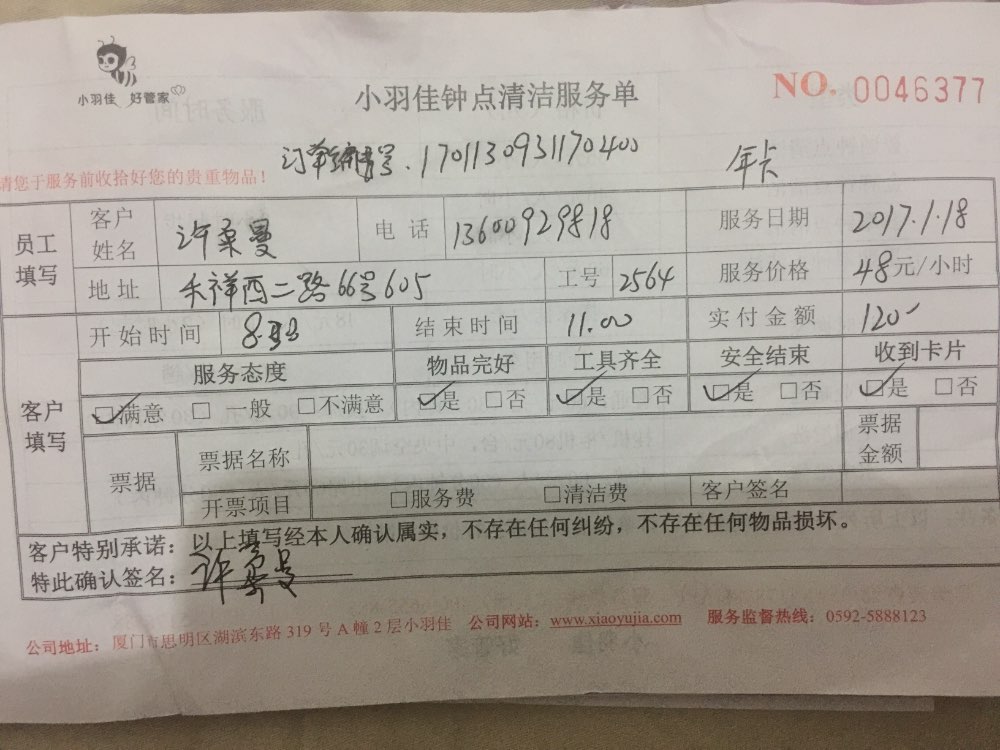 小羽佳 好管家
小羽佳钟点清洁服务单
NO. 0046377
订单编号.1701130931170400
年卡
请您于服务前收拾好您的贵重物品！
员工填写 客户姓名 许桑曼 电话 13600929818 服务日期 2017.1.18
地址 禾祥西二路66号605 工号 2564 服务价格 48元/小时
客户填写 开始时间 8:30 结束时间 11.00 实付金额 120-
服务态度 物品完好 工具齐全 安全结束 收到卡片
☑满意 □一般 □不满意 ☑是 □否 ☑是 □否 ☑是 □否 ☑是 □否
票据 票据名称 票据金额
开票项目 □服务费 □清洁费 客户签名
客户特别承诺：以上填写经本人确认属实，不存在任何纠纷，不存在任何物品损坏。
特此确认签名：许桑曼
公司地址：厦门市思明区湖滨东路 319 号 A 幢 2 层小羽佳 公司网站：www.xiaoyujia.com 服务监督热线：0592-5888123